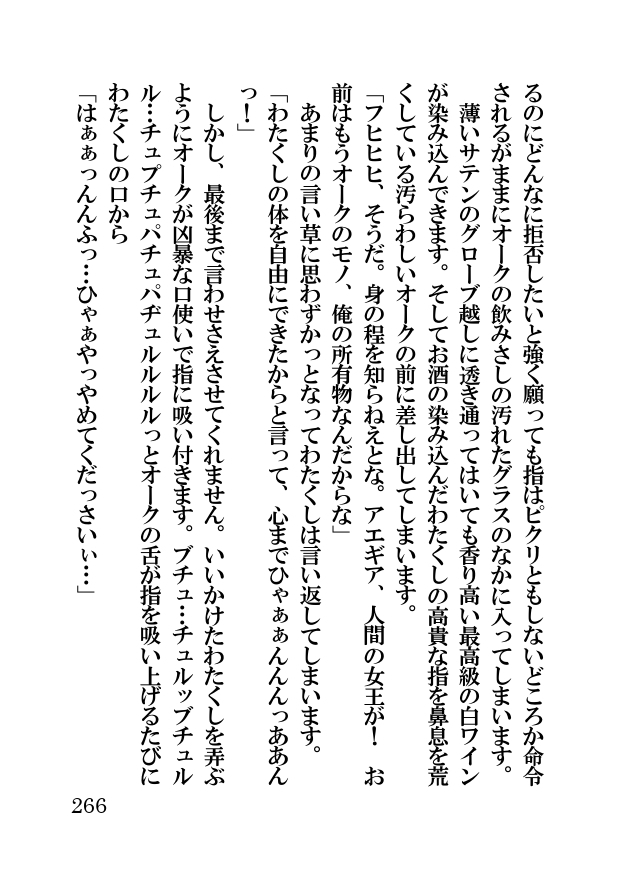 るのにどんなに拒否したいと強く願っても指はピクリともしないどころか命令
されるがままにオークの飲みさしの汚れたグラスのなかに入ってしまいます。
　薄いサテンのグローブ越しに透き通ってはいても香り高い最高級の白ワイン
が染み込んできます。そしてお酒の染み込んだわたくしの高貴な指を鼻息を荒
くしている汚らわしいオークの前に差し出してしまいます。
「フヒヒヒ、そうだ。身の程を知らねえとな。アエギア、人間の女王が！　お
前はもうオークのモノ、俺の所有物なんだからな」
　あまりの言い草に思わずかっとなってわたくしは言い返してしまいます。
「わたくしの体を自由にできたからと言って、心までひゃぁぁんんんっああん
っ！」
　しかし、最後まで言わせさえさせてくれません。いいかけたわたくしを弄ぶ
ようにオークが凶暴な口使いで指に吸い付きます。ブチュ…チュルッブチュル
ル…チュプチュパチュパヂュルルルルっとオークの舌が指を吸い上げるたびに
わたくしの口から
「はぁぁっんんふっ…ひゃぁやっやめてくだっさいぃ…」
266